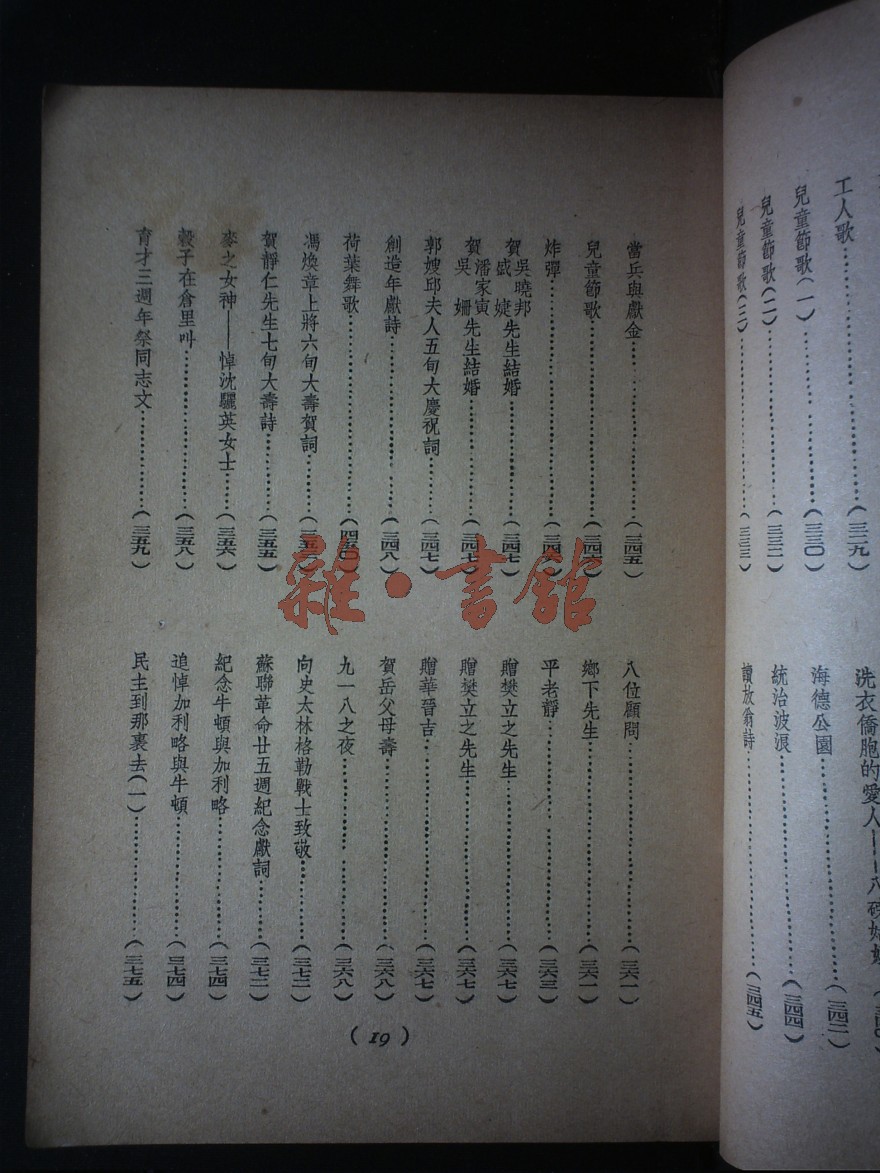 工人歌……(三二九)
兒童節歌(一)……(三三〇)
兒童節歌(二)……(三三二)
兒童節歌(三)……(三三三)
洗衣僑胞的愛人——八磅姑
海德公園……(三四二)
統治波浪……(三四四)
讀放翁詩……(三四五)
當兵與獻金……(三四五)
兒童節歌……(三四六)
炸彈……(三四六)
賀吳曉邦盛婕先生結婚……(三四七)
賀潘家寅吳姍先生結婚……(三四七)
郭嫂邱夫人五旬大慶祝詞……(三四七)
創造年獻詩……(三四八)
荷葉舞歌……(四五〇)
馮煥章上將六旬大壽賀詞……
賀靜仁先生七旬大壽詩……(三五五)
麥之女神——悼沈驪英女士……(三五六)
穀子在倉里叫……(三五八)
育才三週年祭同志文……(三五九)
八位顧問……(三六一)
鄉下先生……(三六一)
平老靜……(三六三)
贈樊立之先生……(三六七)
贈樊立之先生……(三六七)
贈華晉吉……(三六七)
賀岳父母壽……(三六八)
九一八之夜……(三六八)
向史太林格勒戰士致敬……(三七二)
蘇聯革命廿五週紀念獻詞……(三七二)
紀念牛頓與加利略……(三七四)
追悼加利略與牛頓……(三七四)
民主到那裏去(一)……(三七五)
(19)
雜·書館